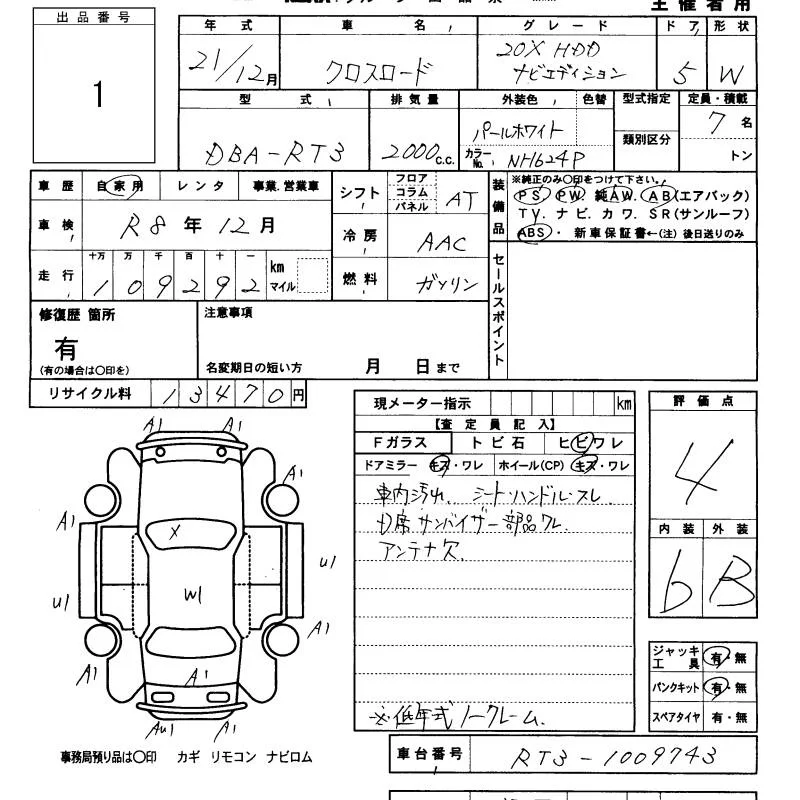 主催者用
出品番号
1
年式 車名 グレード ドア 形状
21/12月 クロスロード 20X HDD ナビエディション 5 W
型式 排気量 外装色 色替 型式指定 定員・積載
DBA-RT3 2000c.c. パールホワイト 類別区分 7名
カラーNo. NH624P トン
車歴 自家用 レンタ 事業.営業車
車検 R8年12月
走行 十万 万 千 百 十 一
109292 km マイル
シフト フロア コラム パネル AT
冷房 AAC
燃料 ガソリン
装備品
※純正のみ〇印をつけて下さい。
PS. PW. 純AW. AB(エアバック)
TV. ナビ. カワ. SR(サンルーフ)
ABS. 新車保証書←(注) 後日送りのみ
セールスポイント
修復歴 箇所
有
(有の場合は〇印を)
注意事項
名変期日の短い方 月 日まで
リサイクル料 13470円
現メーター指示 km
【査定員記入】
Fガラス トビ石 ヒビワレ
ドアミラー キズ・ワレ ホイール(CP) キズ・ワレ
車内汚れ、シート・ハンドル・スレ
D席サンバイザー部品ワレ
アンテナ欠
※低年式ノークレーム.
評価点
4
内装 外装
6 B
ジャッキ工具 有・無
パンクキット 有・無
スペアタイヤ 有・無
A1 A1
A1
A1
X
U1
W1
U1
A1
A1
A1
AU1 A1
事務局預り品は〇印 カギ リモコン ナビロム
車台番号 RT3-1009743